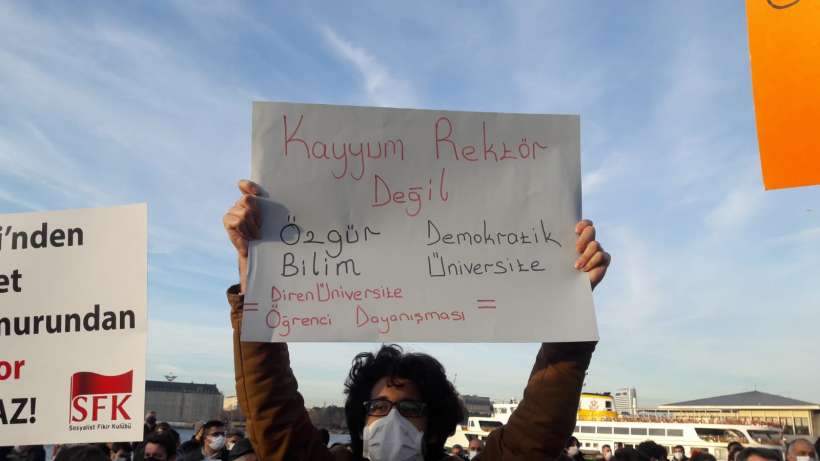 Kayyum Rektör
Değil
Özgür Demokratik
Bilim Üniversite
= Diren Üniversite
Öğrenci Dayanışması =
i'nden
et
murundan
or
AZ!
SFK
Sosyalist Fikir Kulübü